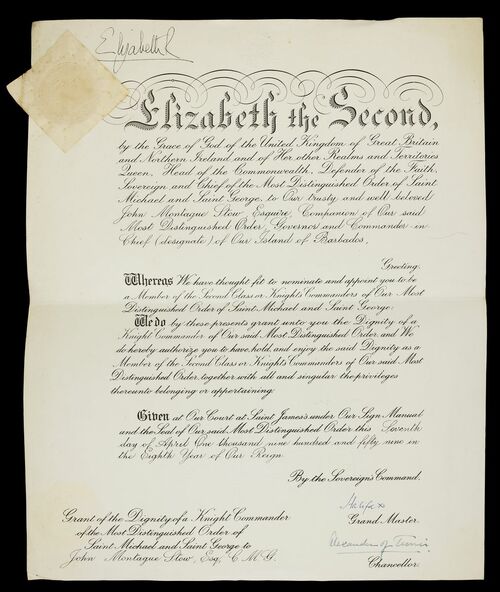 Elizabeth R
Elizabeth the Second,
by the Grace of God of the United Kingdom of Great Britain
and Northern Ireland and of Her other Realms and Territories
Queen, Head of the Commonwealth, Defender of the Faith,
Sovereign and Chief of the Most Distinguished Order of Saint
Michael and Saint George, to Our trusty and well beloved
John Montague Stow Esquire, Companion of Our said
Most Distinguished Order, Governor and Commander in
Chief (designate) of Our Island of Barbados,
Greeting.
Whereas We have thought fit to nominate and appoint you to be
a Member of the Second Class or Knights Commanders of Our Most
Distinguished Order of Saint Michael and Saint George;
We do by these presents grant unto you the Dignity of a
Knight Commander of Our said Most Distinguished Order, and We
do hereby authorize you to have, hold, and enjoy the said Dignity as a
Member of the Second Class or Knights Commanders of Our said Most
Distinguished Order, together with all and singular the privileges
thereunto belonging or appertaining.
Given at Our Court at Saint James's under Our Sign Manual
and the Seal of Our said Most Distinguished Order this Seventh
day of April One thousand nine hundred and fifty nine in
the Eighth Year of Our Reign.
By the Sovereign's Command.
Halifax
Grand Master.
Grant of the Dignity of a Knight Commander
of the Most Distinguished Order of
Saint Michael and Saint George to
John Montague Stow, Esq, C.M.G.
Alexander of Tunis
Chancellor.